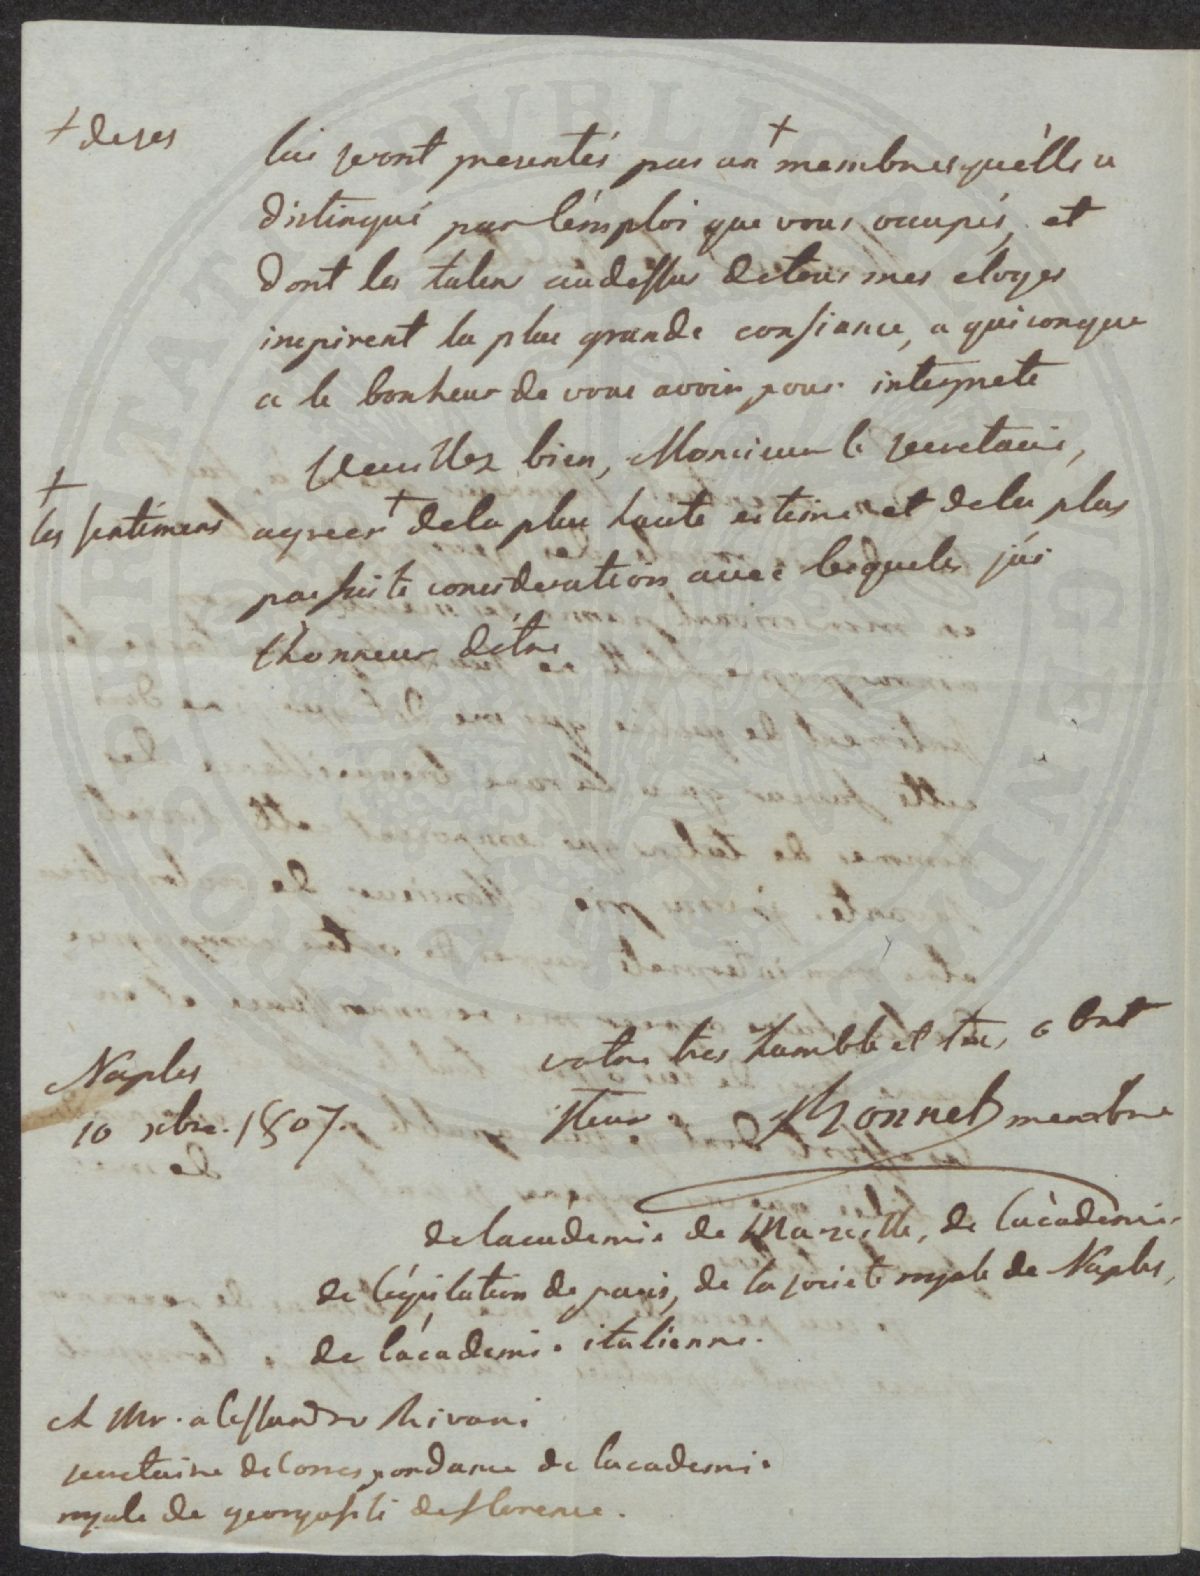 + de ses
lui seront presentés par un + membres qu'elle a
distingué par l'emploi que vous occupés, et
dont les talens audessus de tous mes eloges
inspirent la plus grande confiance, a quiconque
a le bonheur de vous avoir pour interprete
Veuillez bien, Monsieur le secretaire,
+
les sentimens
agreer + de la plus haute estime et de la plus
parfaite consideration avec lesquels j'ai
l'honneur d'etre
votre tres humble et tres obeit
Naples
10 xbre. 1807.
steur. Thonnet membre
de l'academie de Marseille, de l'academie
de legislation de paris, de la societe royale de Naples,
de l'academie italienne.
A Mr. alessandro Rivani
secretaire de Correspondance de l'academie
royale de georgofili de florence.